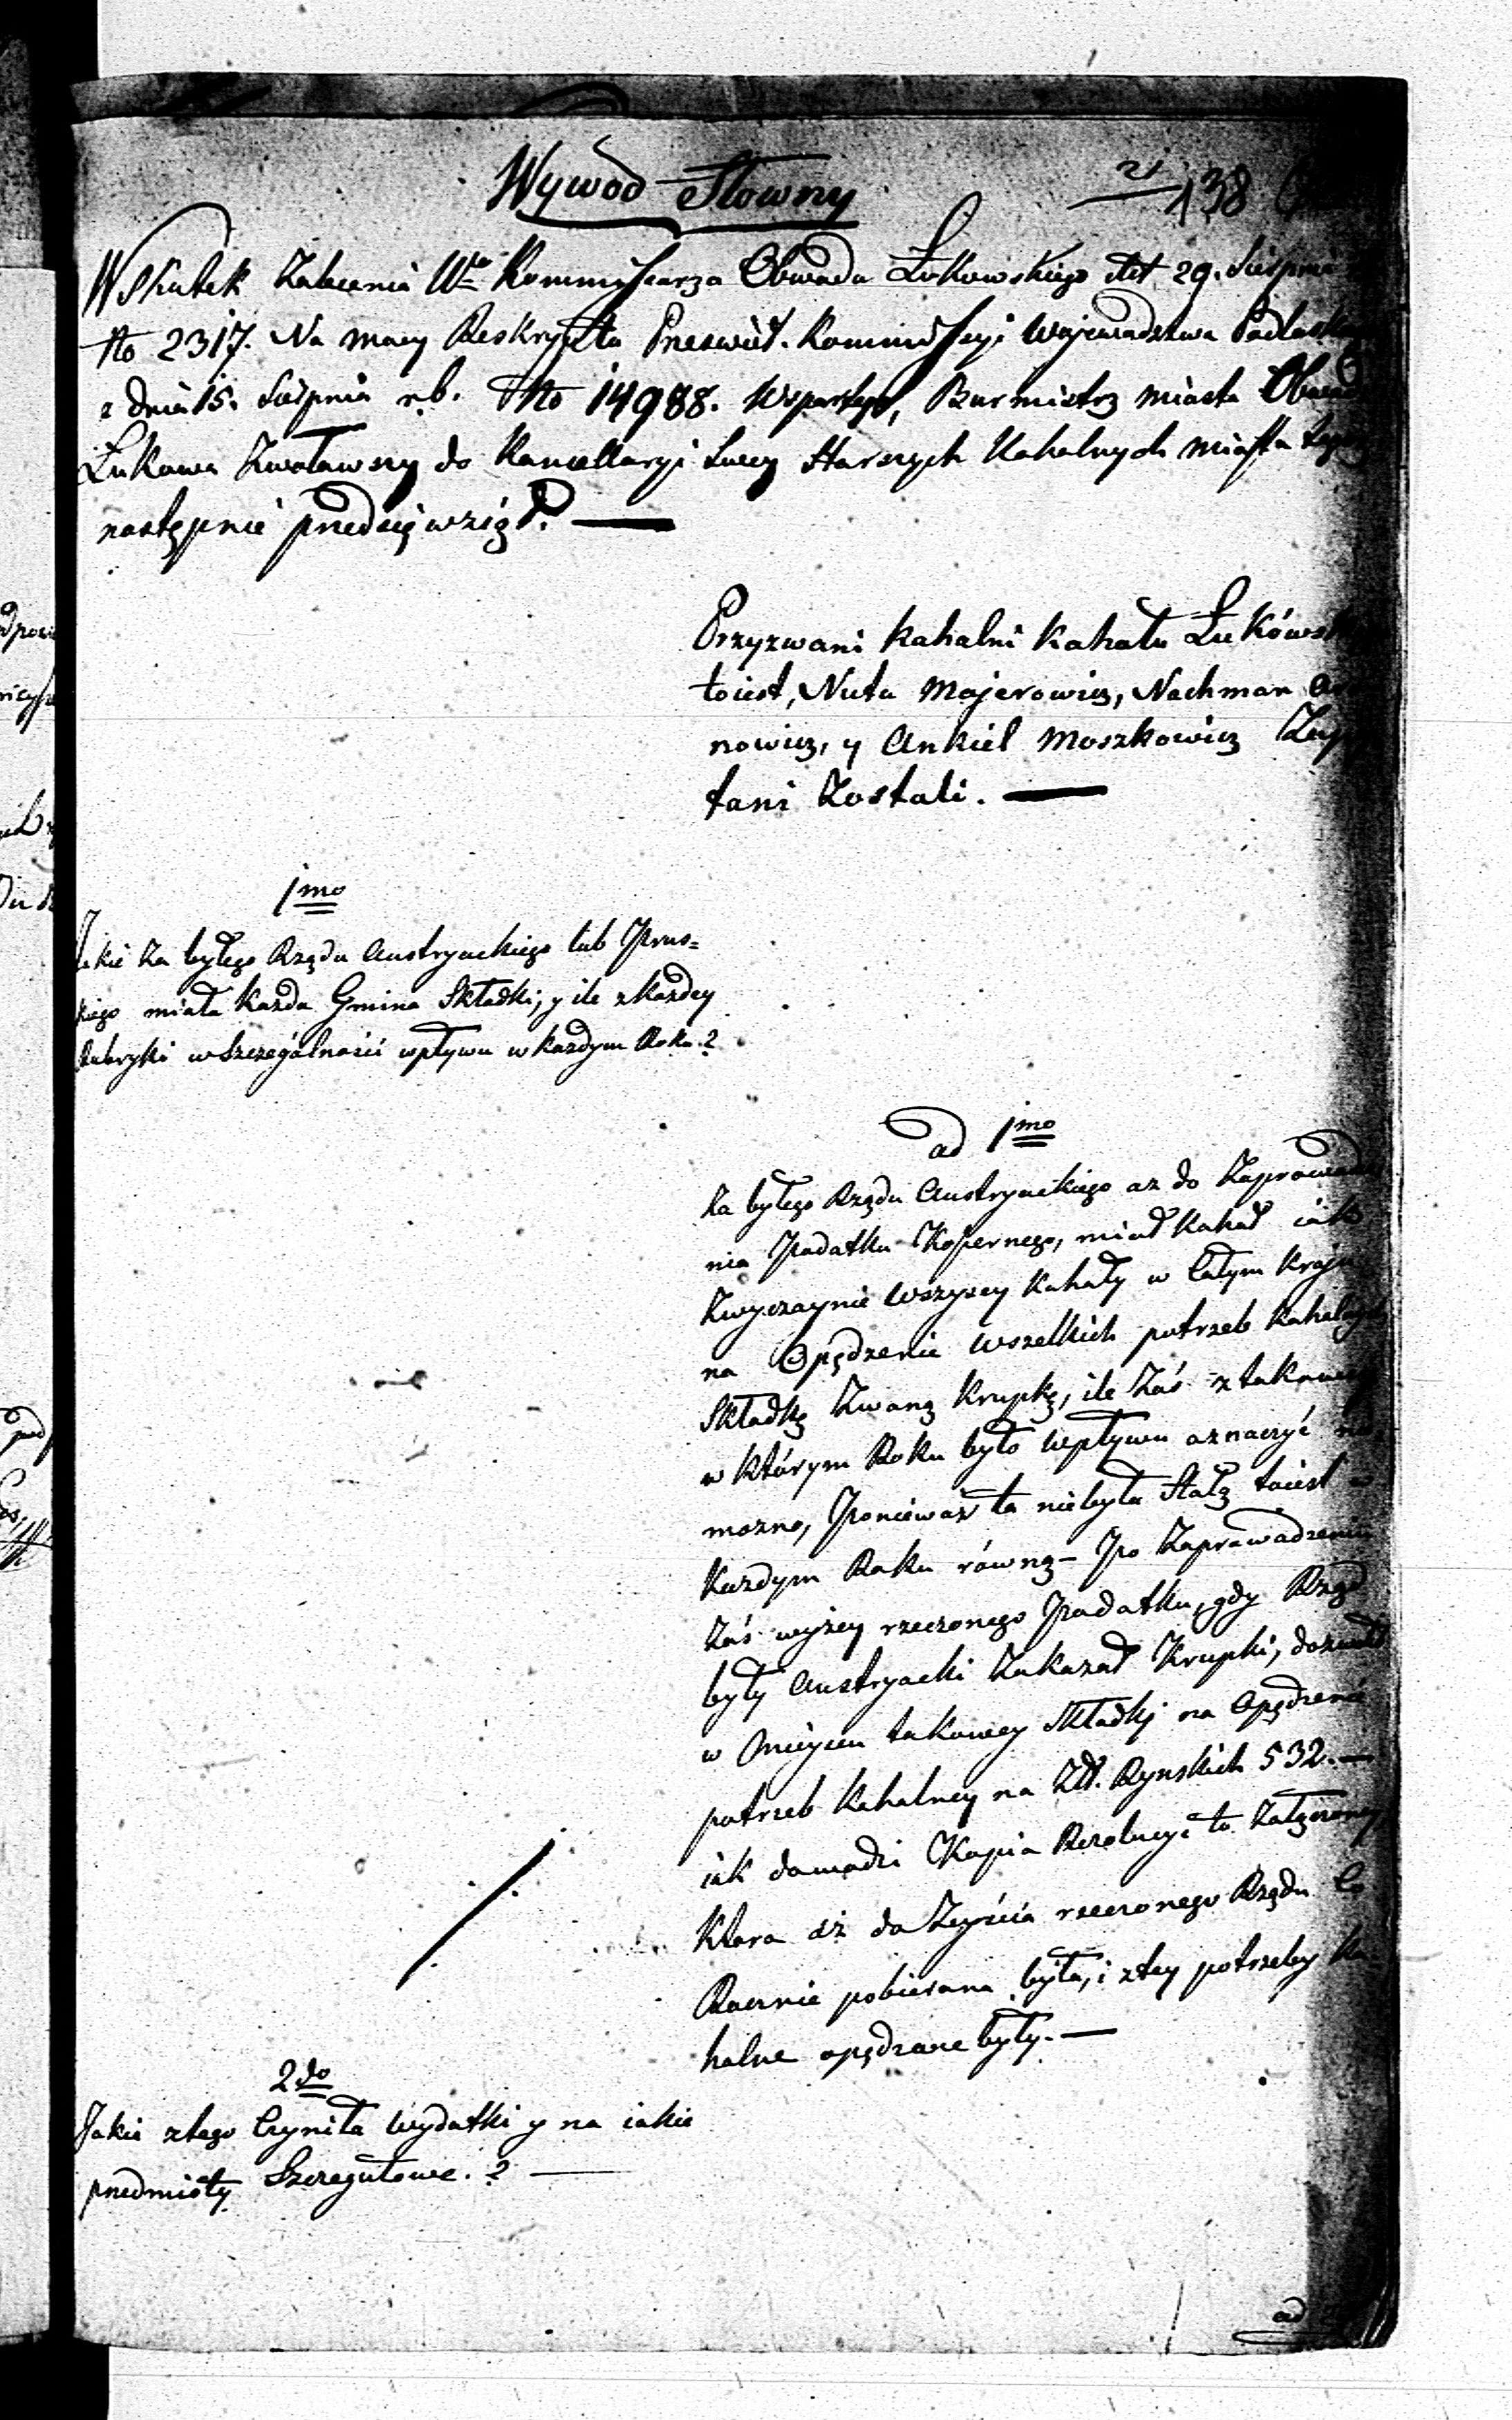 Wywod Słowny
138
W Skutek Zalecenia Wgo Kommissarza Obwodu Łukowskiego dtt 29. Sierpnia
No 2317. Na mocy Reskryptu Przeświet. Kommissyi Województwa Podlaskie
z dnia 15. Sierpnia r.b. No 14988. wspartego, Burmistrz Miasta Obwod
Łukowa Zwoławszy do Kancellaryi Swey Starszych Kahalnych Miasta tego
następnie przedsięwziął. —
Przyzwani Kahalni Kahału Łukowsk
toiest, Nuta Majerowicz, Nachman
nowicz, y Ankiel Moszkowicz Zapy
tani Zostali. —
1mo
Jakie za byłego Rządu Austryackiego lub Prus=
kiego miała Każda Gmina Składki, y ile z Każdey
Rubryki w Szczególności wpływu w Każdym Roku.?
ad 1mo
Za byłego Rządu Austryackiego az do Zaprowadze
nia Podatku Koszernego, miał Kahał iak
Zwyczaynie Wszyscy Kahały w Całym Kraju
na Opędzenie Wszelkich potrzeb Kahalnych
Składkę Zwaną Krupkę, ile Zaś z takowey
w którym Roku było Wpływu oznaczyć nie
mozno, Ponieważ ta niebyła Stałą toiest w
Kazdym Roku równą – Po Zaprowadzeniu
Zaś wyżey rzeczonego Podatku, gdy Rząd
były Austryacki Zakazał Krupki, dozwolił
w Mieyscu takowey Składki na Opędzenie
potrzeb Kahalney na Złł. Rynskich 532.—
iak dowodzi Kopia Rezolucyi tu Załączoney
Ktora aż do Zeyścia rzeczonego Rządu Co
Rocznie pobierana była, i z tey potrzeby Ka=
halne opędzane były. —
2do
Jakie z tego Czyniła Wydatki y na iakie
przedmioty Szczegułowe.? —
ad